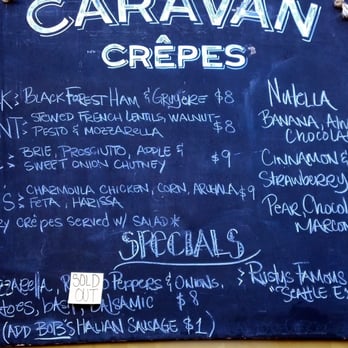 CARAVAN
CRÊPES
BLACK FOREST HAM & GRUYÈRE $8
STEWED FRENCH LENTILS, WALNUT
PESTO & MOZZARELLA $8
BRIE, PROSCIUTTO, APPLE &
SWEET ONION CHUTNEY $9
CHARMOULA CHICKEN, CORN, ARUGULA $9
FETA, HARISSA
CRÊPES SERVED W/ SALAD*
NUTELLA
BANANA,
CHOCOLAT
CINNAMON &
STRAWBERRY
PEAR, CHOCO
SPECIALS
PEPPERS & ONIONS,
SOLD
OUT
BALSAMIC $8
(ADD BOB'S ITALIAN SAUSAGE $1)
> RUSTY'S FAMOUS
"SEATTLE